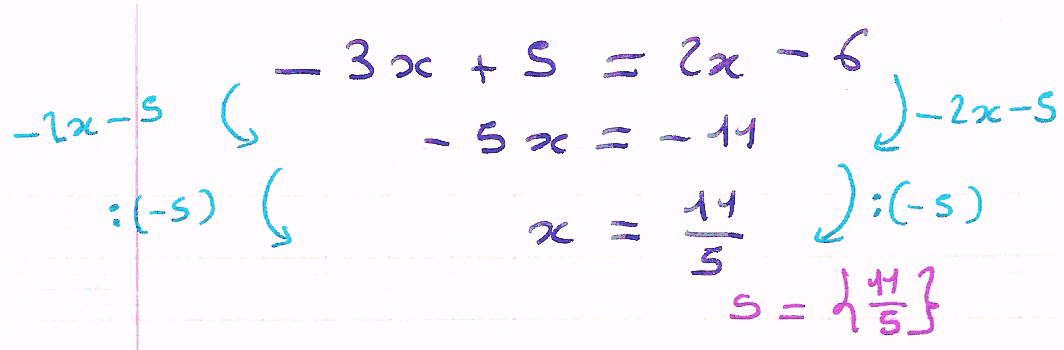 -3x + 5 = 2x - 6
-2x-5 -2x-5
-5x = -11
:(-5) :(-5)
x = 11/5
S = {11/5}